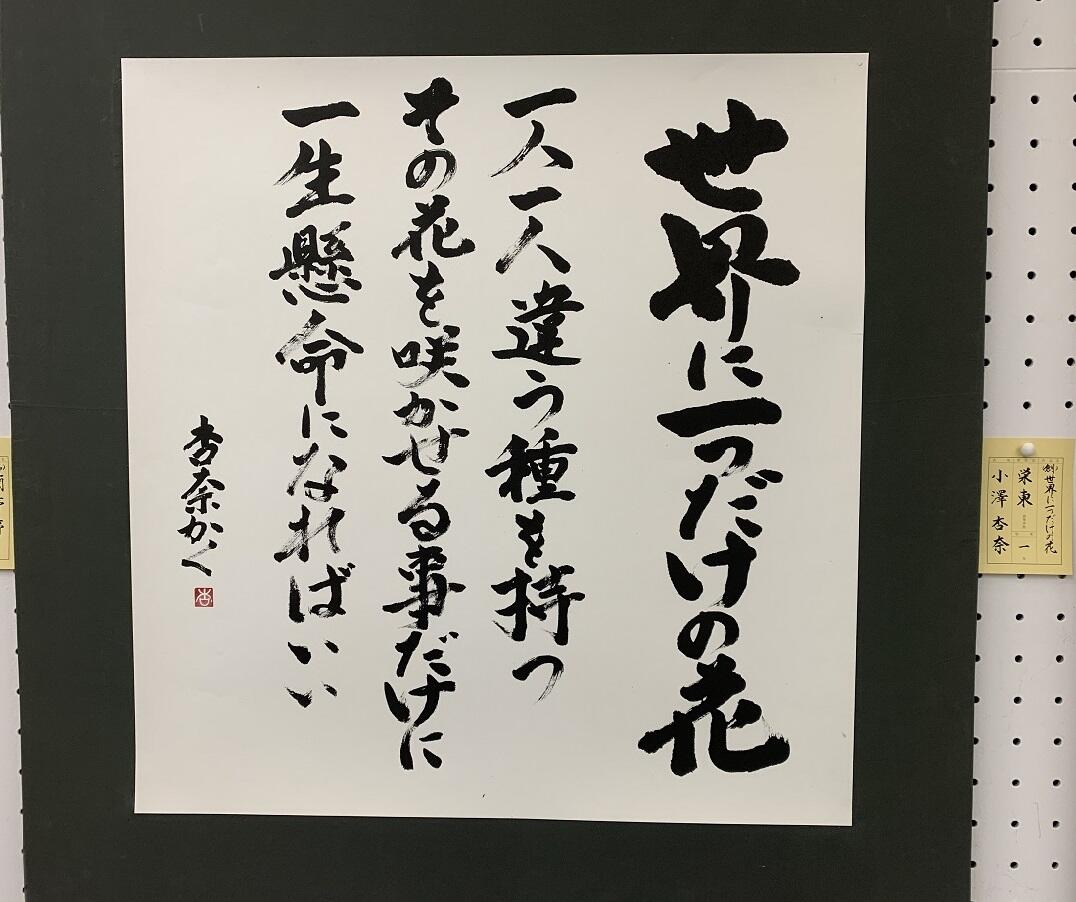 世界に一つだけの花
一人一人違う種を持つ
その花を咲かせる事だけに
一生懸命になればいい
杏奈かく
杏
創 世界に一つだけの花
栄東 一
小澤杏奈